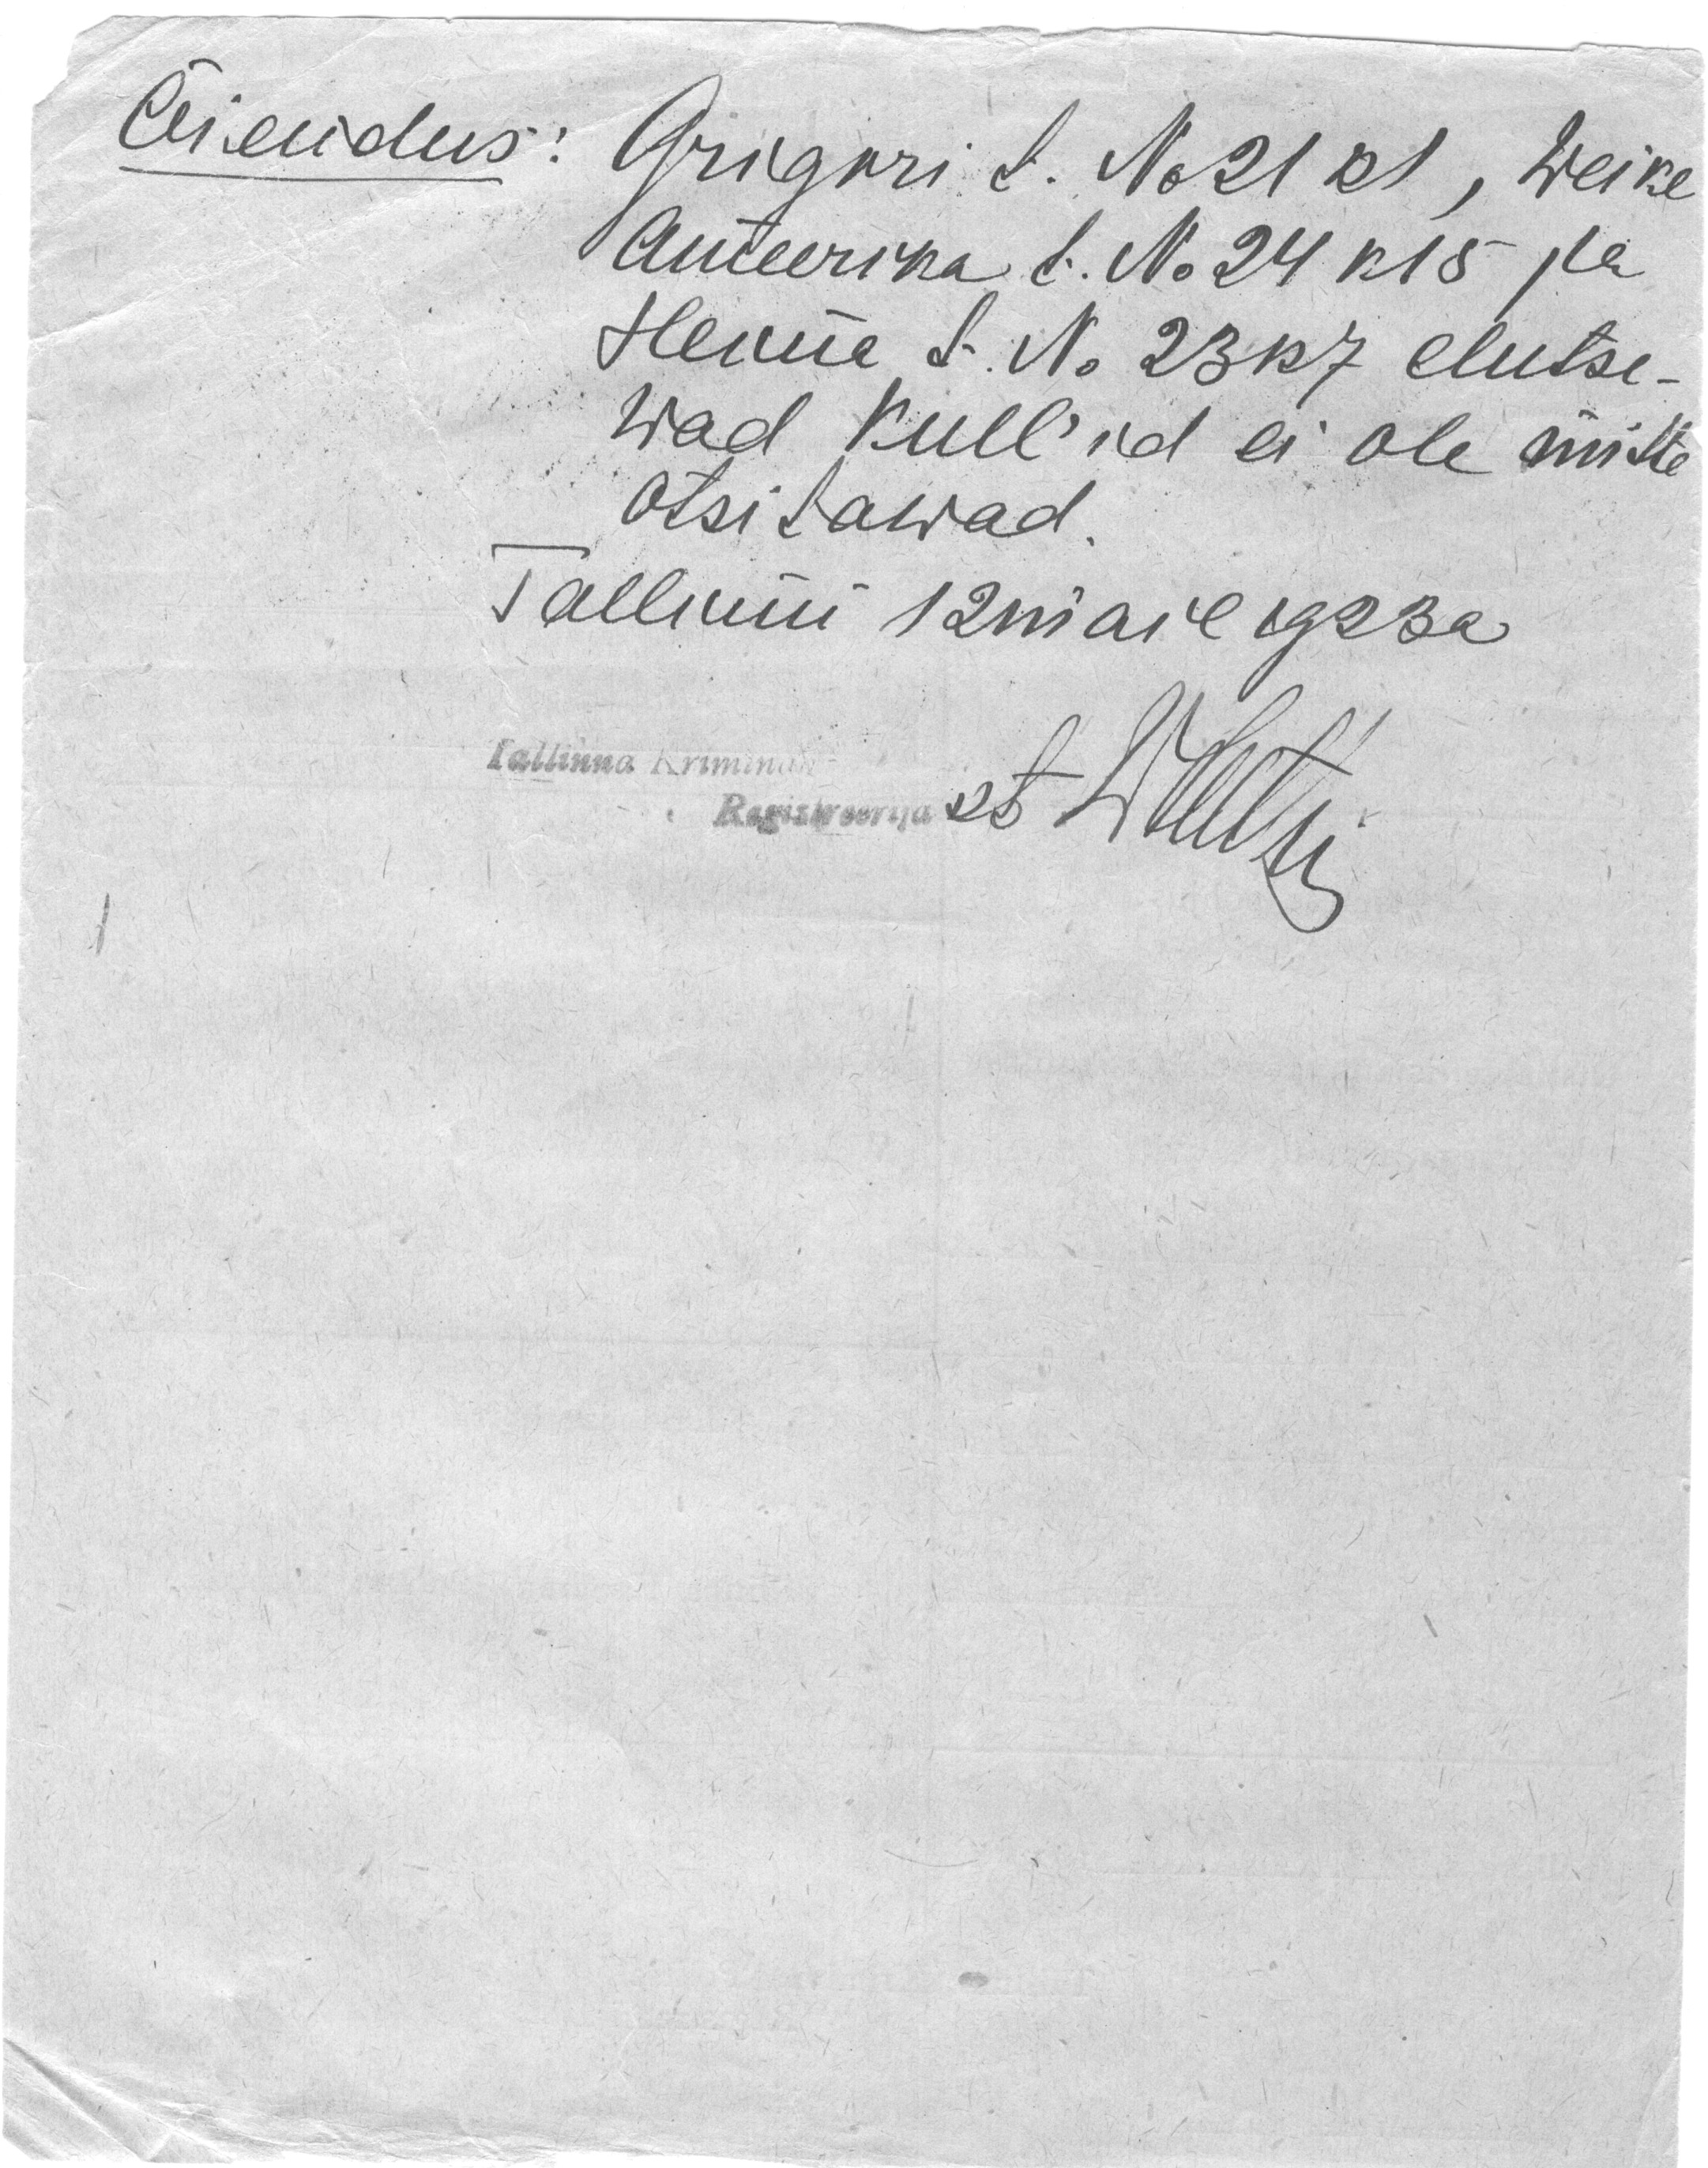 Õiendus: Grigori t. No 21 k1, Weike
Ameerika t. No 24 k 15 ja
Henna t. No 23 k 7 elutse-
wad Kull'id ei ole mitte
otsitawad.
Tallinn 12 mail 1923 a
Tallinna Kriminal-
Registreerija